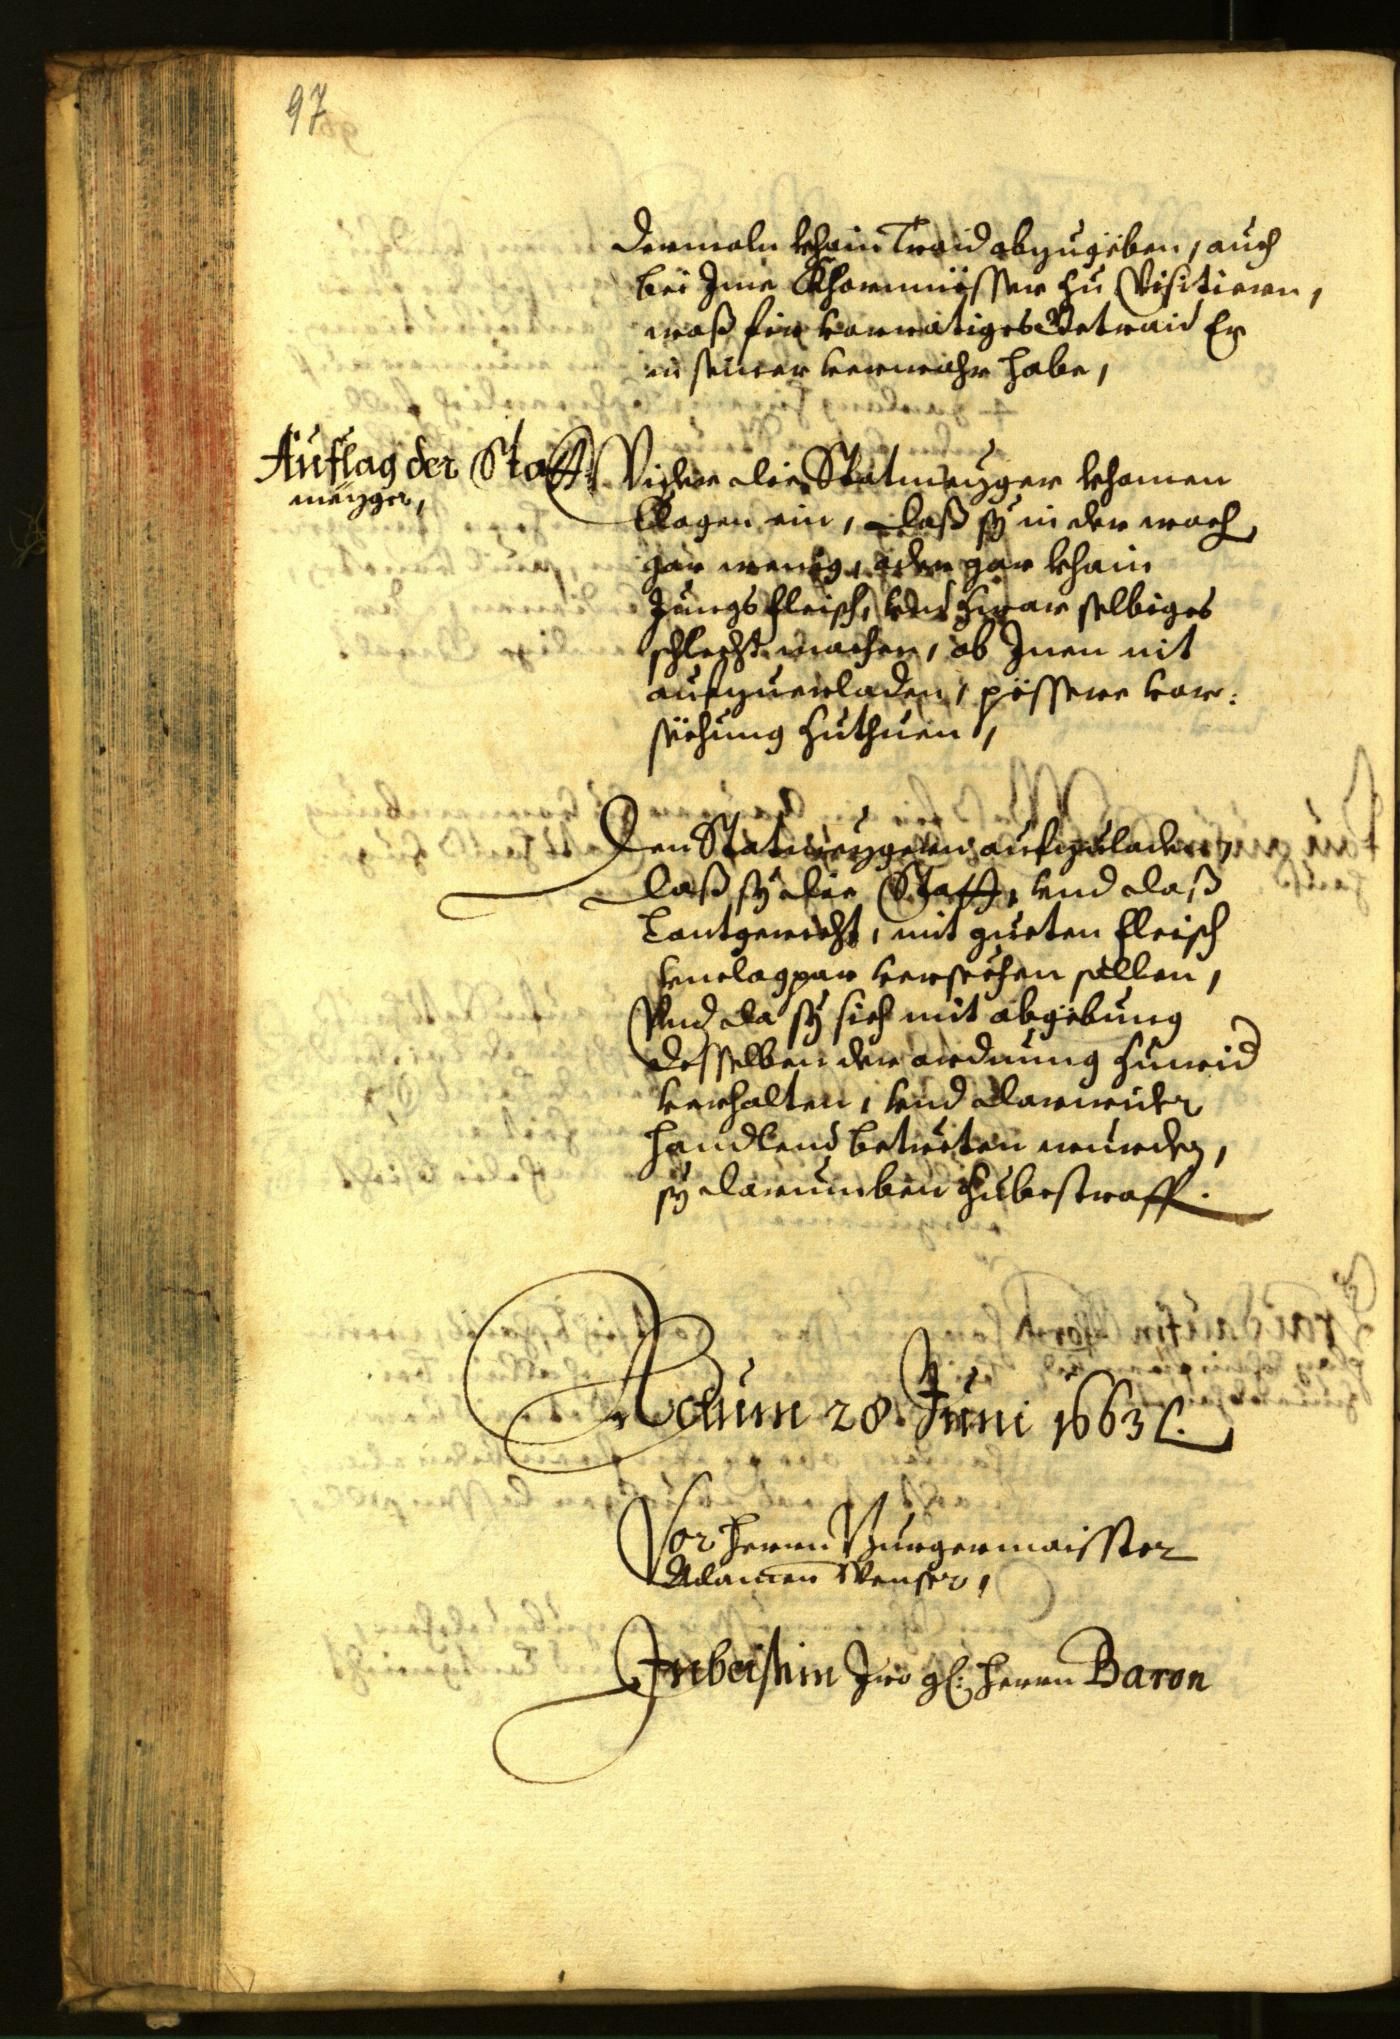 97
dermaln khain Traid abzugëben, auch
bei Ime Khornmösser zu Visitiern,
waß für vorrätiges Getraid Er
in seiner verwahr habe,
Auflag der Statt
mezger,
Wider die Statmezger khomen
Clagen ein, daß sÿ in der woch
gar wenig, oder gar khain
Jungs fleisch, vnd zwar selbiges
schlecht machen, ob Inen nit
aufzuerladen, pössere vor:
sëchung zuthuen,
Den Statmezgern aufzuladen,
daß sÿ die Statt, vnd daß
Lantgericht, mit gueten fleisch
vnclagpar versechen sollen,
Vnd da sÿ sich mit abgëbung
desselben der ordnung zuwid
verhalten, vnd darwider
handlend betreten wurden,
sÿ darumben zubestraff.
Actum 28 Juni 1663 /.
Vor herrn Burgermaister
Adamen Wenser,
In beisein Iro gl: herrn Baron